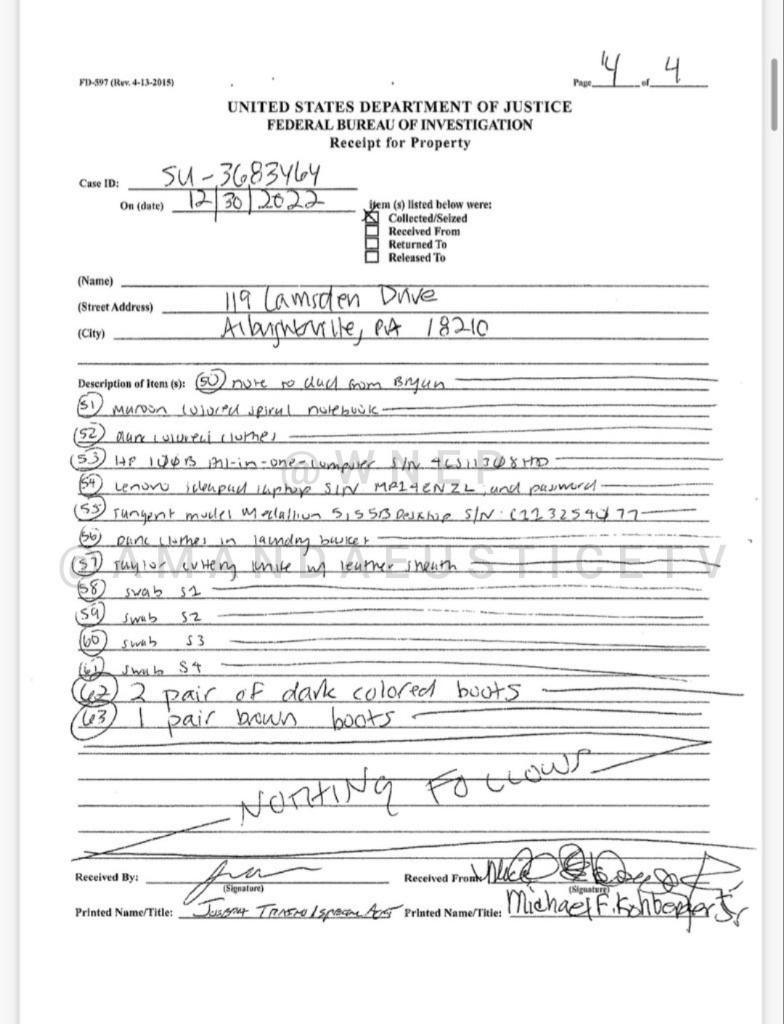 FD-597 (Rev. 4-13-2015)
Page 4 of 4
UNITED STATES DEPARTMENT OF JUSTICE
FEDERAL BUREAU OF INVESTIGATION
Receipt for Property
Case ID: SU-3683464
On (date) 12/30/2022
item (s) listed below were:
Collected/Seized
Received From
Returned To
Released To
(Name)
(Street Address) 119 Lamsden Drive
(City) Albrightsville, PA 18210
Description of Item (s): 50 note to dad from Bryan
51 maroon colored spiral notebook
52 dark colored clothes
53 HP All-in-one-computer S/N
54 Lenovo ideapad laptop S/N MP14ENZL, and password
55 Tangent model Medallion Desktop S/N:
56 Dark clothes in laundry basket
57 Taylor cutting knife w/ leather sheath
58 swab S1
59 swab S2
60 swab S3
61 swab S4
62 2 pair of dark colored boots
63 1 pair brown boots
NOTHING FOLLOWS
@WNEP
@AMANDAEUSTICETV
Received By:
(Signature)
Received From:
(Signature)
Printed Name/Title: Special Agent
Printed Name/Title: Michael F. Kohberger Jr.